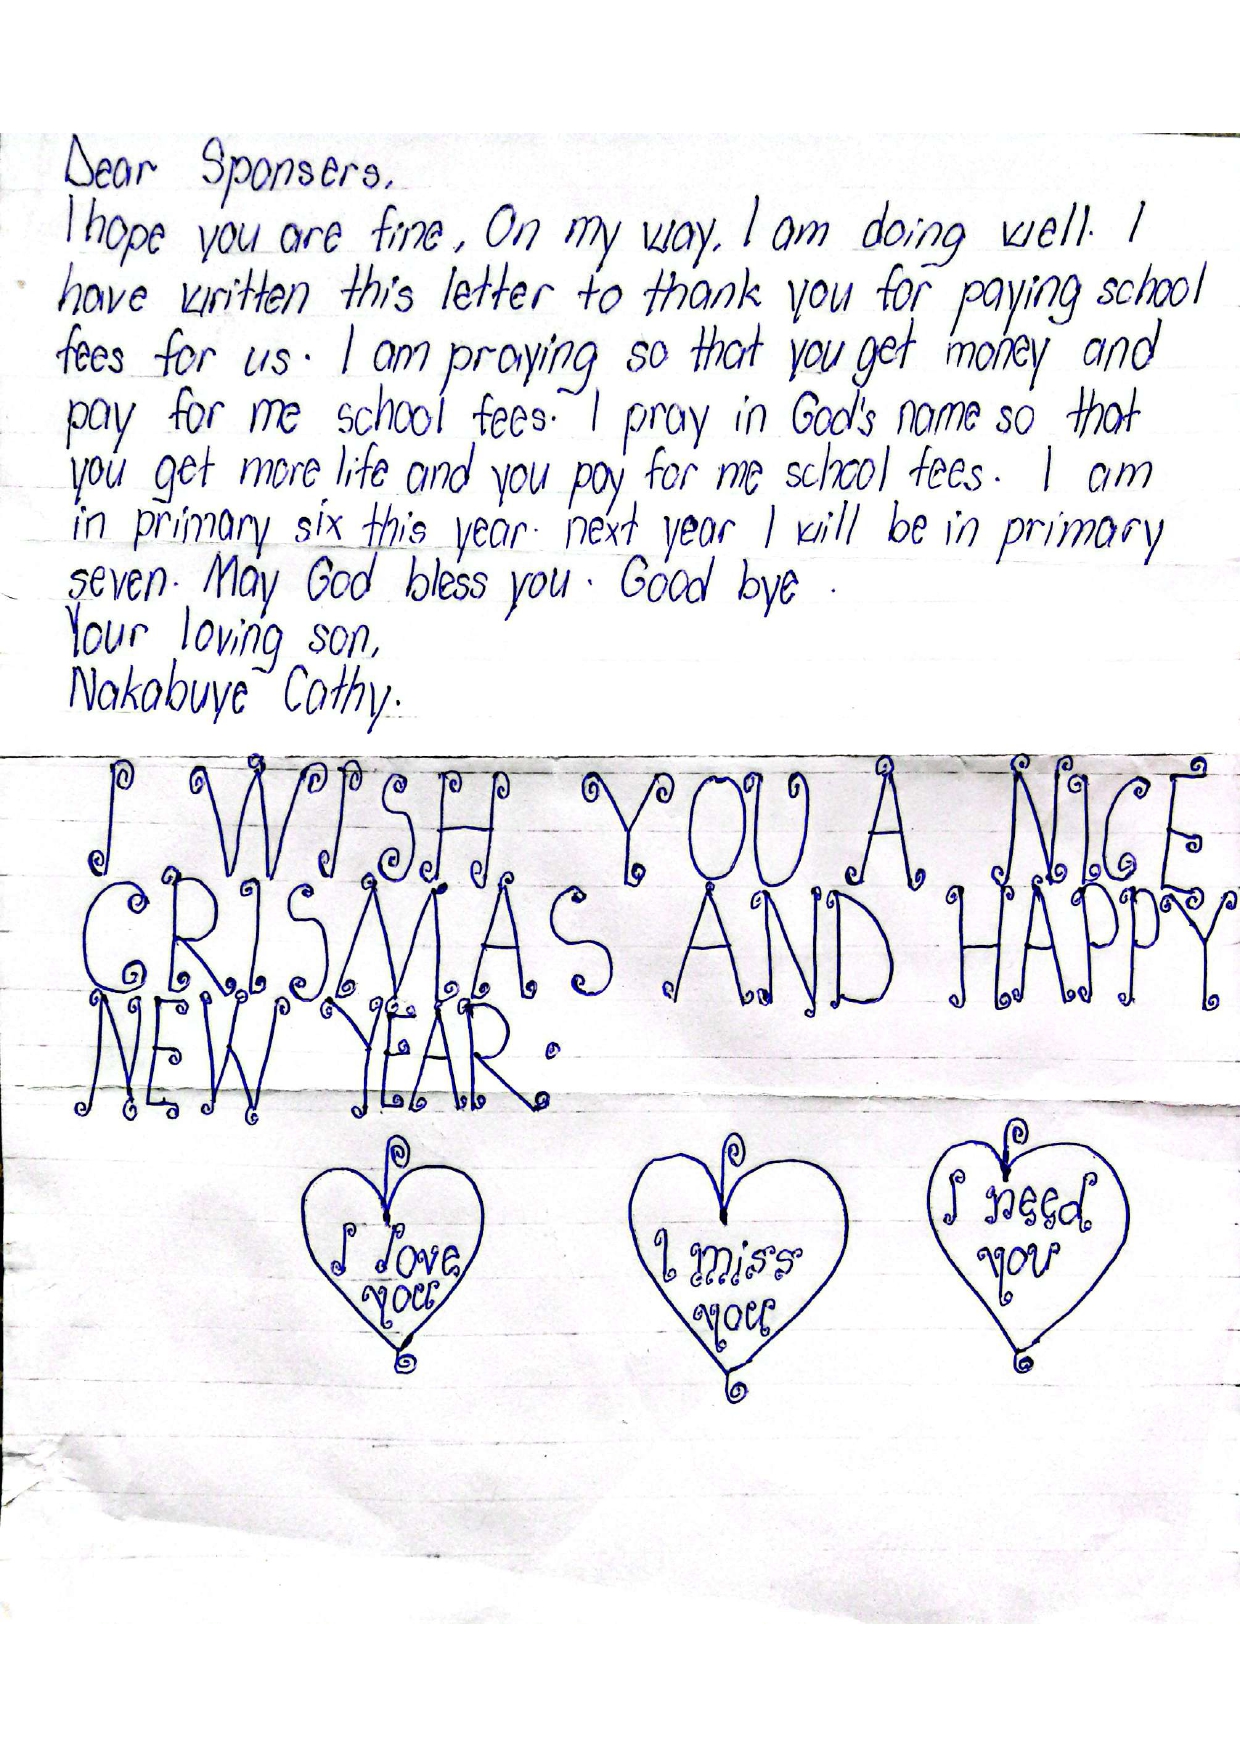 Dear Sponsers,
I hope you are fine, On my way, I am doing well. I
have written this letter to thank you for paying school
fees for us. I am praying so that you get money and
pay for me school fees. I pray in God's name so that
you get more life and you pay for me school fees. I am
in primary six this year. next year I will be in primary
seven. May God bless you. Good bye.
Your loving son,
Nakabuye Cathy.
I WISH YOU A NICE
CRISMAS AND HAPPY
NEW YEAR.
I love
you
I miss
you
I need
you